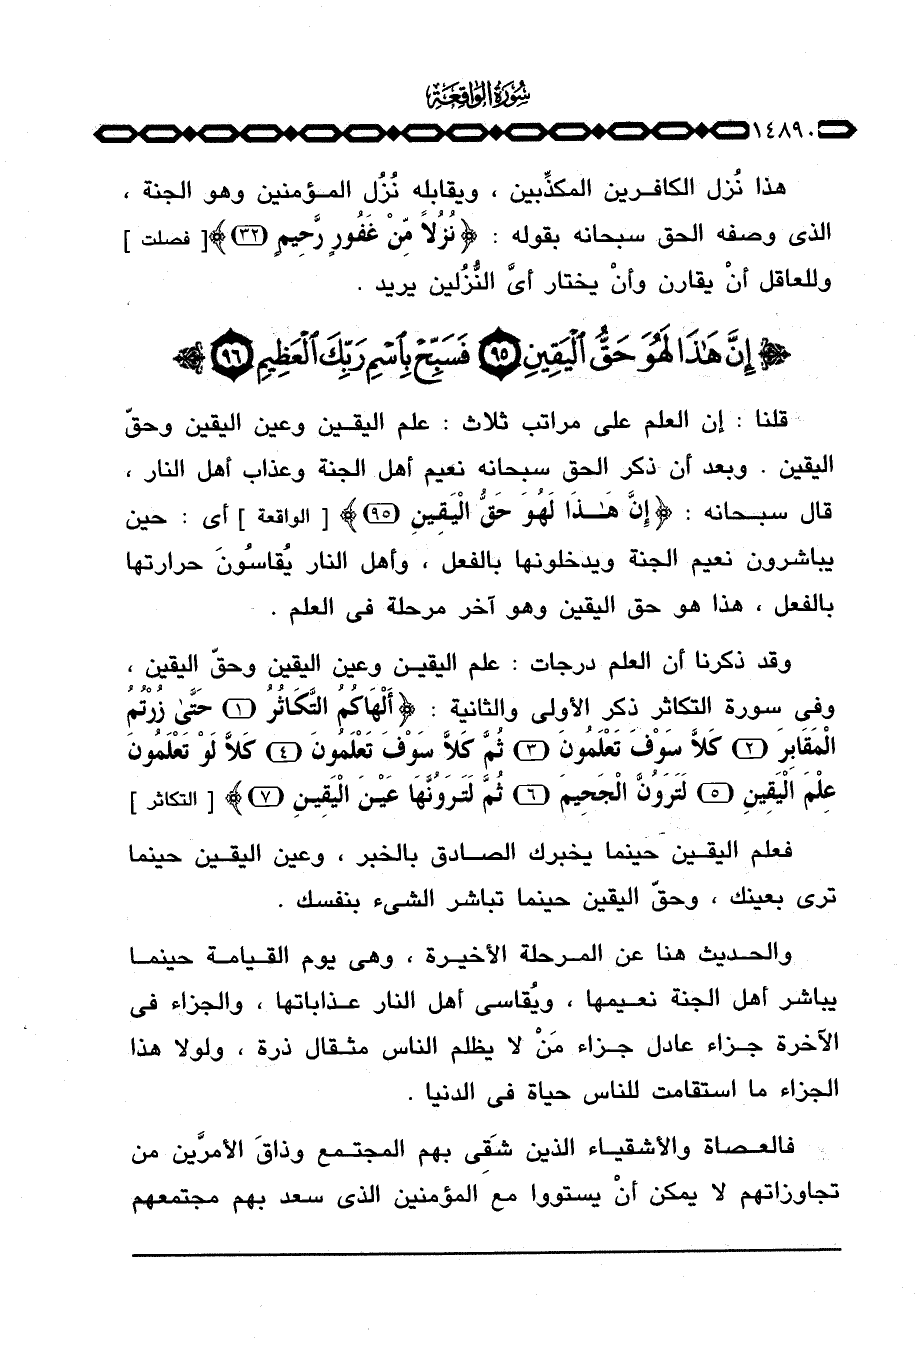 سُورَةُ الوَاقِعَة
١٤٨٩٠
هذا نُزل الكافرين المكذِّبين ، ويقابله نُزُل المـؤمنين وهو الجنة ،
الذى وصفه الحق سبحانه بقوله : ﴿ نُزُلاً مِّنْ غَفُورٍ رَّحِيمٍ (٣٢) ﴾ [ فصلت ]
وللعاقل أنْ يقارن وأنْ يختار أىَّ النُّزُلين يريد .
﴿ إِنَّ هَٰذَا لَهُوَ حَقُّ ٱلْيَقِينِ (٩٥) فَسَبِّحْ بِٱسْمِ رَبِّكَ ٱلْعَظِيمِ (٩٦) ﴾
قلنا : إن العلم على مراتب ثلاث : علم اليقـين وعين اليقين وحقّ
اليقين . وبعد أن ذكر الحق سبحانه نعيم أهل الجنة وعذاب أهل النار ،
قال سبـحانه : ﴿ إِنَّ هَـٰـذَا لَهُوَ حَقُّ الْيَقِينِ (٩٥) ﴾ [ الواقعة ] أى : حين
يباشرون نعيم الجنة ويدخلونها بالفعل ، وأهل النار يُقاسُونَ حرارتها
بالفعل ، هذا هو حق اليقين وهو آخر مرحلة فى العلم .
وقد ذكرنا أن العلم درجات : علم اليقيـن وعين اليقين وحقّ اليقين ،
وفى سورة التكاثر ذكر الأولى والثانية : ﴿ أَلْهَاكُمُ التَّكَاثُرُ (١) حَتَّىٰ زُرْتُمُ
الْمَقَابِرَ (٢) كَلاَّ سَوْفَ تَعْلَمُونَ (٣) ثُمَّ كَلاَّ سَوْفَ تَعْلَمُونَ (٤) كَلاَّ لَوْ تَعْلَمُونَ
عِلْمَ الْيَقِينِ (٥) لَتَرَوُنَّ الْجَحِيمَ (٦) ثُمَّ لَتَرَوُنَّهَا عَيْنَ الْيَقِينِ (٧) ﴾ [ التكاثر ]
فعلم اليقـين حينما يخبرك الصـادق بالخبر ، وعين اليقـين حينما
ترى بعينك ، وحقّ اليقين حينما تباشر الشىء بنفسك .
والحـديث هنا عن المـرحلة الأخيـرة ، وهى يوم القيـامة حينمـا
يباشر أهل الجنة نعـيمها ، ويُقاسى أهل النار عـذاباتها ، والجزاء فى
الآخرة جـزاء عادل جـزاء مَنْ لا يظلم الناس مثـقال ذرة ، ولولا هذا
الجزاء ما استقامت للناس حياة فى الدنيا .
فالعـصاة والأشقيـاء الذين شقَى بهم المجتـمع وذاقَ الأمرَّين من
تجاوزاتهم لا يمكن أنْ يستووا مع المؤمنين الذى سعد بهم مجتمعهم